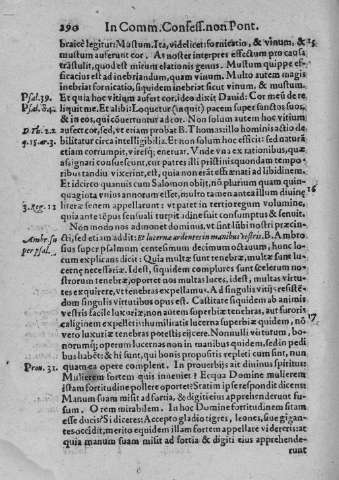 290 In Comm. Confess. non Pont.
braicè legitur: Mustum. Ita, videlicet: fornicatio, & vinum, & 15
mustum auferunt cor. At noster interpres effectum pro causa
trāstulit, quod est mirum elationis genus. Mustum quippe ef-
ficatius est ad inebriandum, quam vinum. Multo autem magis
inebriat fornicatio, siquidem inebriet sicut vinum, & mustum.
Psal. 39. Et quia hoc vitium aufert cor, ideo dixit Dauid: Cor meū de re
Psal. 84. liquit me. Et alibi: Loquetur (inquit) pacem super sanctos suos,
& in eos, qui cōuertuntur ad cor. Non solum autem hoc vitium
D. Th. 2.2 aufert cor, sed, ve etiam probat B. Thomas illo hominis actio de-
q. 15. ar. 3. bilitatur circa intelligibilia. Et non solum hoc efficit: sed naturā
etiam corrumpit, viresq; eneruat. Vnde vna ex rationibus, quæ
assignari consueuerunt, cur patres illi pristinis quondam tempo-
ribus tandiu vixerint, est, quia non erāt ita effrænati ad libidinem.
Et idcirco quamuis cum Salomon obijt, nō plurium quam quin-
quaginta vnius annorum esset, multo tamen antea illum diuinę 16
3. Reg. 11 literæ senem appellarunt: vt pater in tertio regum volumine,
quia ante tēpus sensuali turpitudine fuit consumptus & senuit.
Non modo nos admonet dominus, vt sint lūbi nostri præcin-
Ambr. su cti, sed etiam addit: Et lucernæ ardentes in manibus vestris. B. Ambro.
per psal. sius super psalmum centesimum decimum octauum, hunc lo-
cum explicans dicit: Quia multæ sunt tenebræ, multæ sunt lu-
cernę necessariæ. Idest, siquidem complures sunt scelerum no-
strorum tenebræ, oportet nos multas luces, idest, multas virtu-
tes exquirere, vt tenebras expellamus. Ad singula vitij resistē-
dum singulis virtutibus opus est. Castitate siquidem ab animis
vestris facile luxuriæ, non autem superbiæ tenebras, aut furoris
caliginem expelletis: humilitatis lucerna superbiæ quidem, nō 17
vero luxuriæ tenebras poestis eijcere. Nonnulli virtutum, bo-
norumq; operum lucernas non in manibus quidem, sed in pedi
bus habēt: & hi sunt, qui bonis propositis repleti cum sint, nun
Prou. 31. quam ea opere complent. In prouerbijs ait diuinus spiritus:
Mulierem fortem quis inueniet? Ecqua Domine mulierem
istam fortitudine pollere oportet: Statim ipse respondit dicens:
Manum suam misit ad fortia, & digiti eius apprehenderunt fu-
sum. O rem mirabilem. In hoc Domine fortitudinem sitam
esse ducis? Si diceres: Accepto gladio tigres, leones, siue gigan-
tes occidit, merito equidem illam fortem appellare videreris: at
quia manum suam misit ad fortia & digiti eius apprehende-
runt